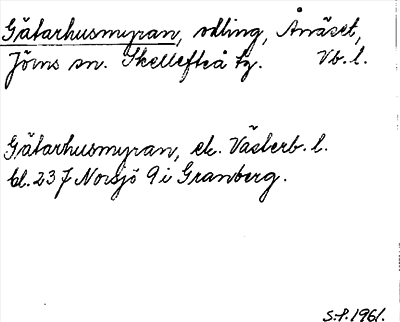 Gätarhusmyran, odling, Ånäset,
Jörns sn. Skellefteå tg. Vb. l.
Gätarhusmyran, ek. Västerb. l.
bl. 23 J Norsjö 9 i Granberg.
S.P. 1961.